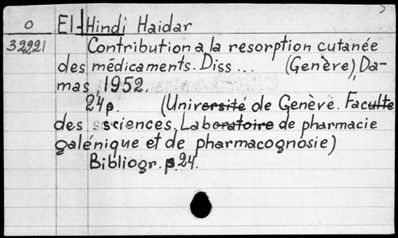 5
O El-Hindi Haidar
32221 Contribution a la resorption cutanée
des médicaments. Diss... (Genère), Da-
mas 1952.
24p. (Université de Genève. Faculté
des sciences. Laboratoire de pharmacie
galénique et de pharmacognosie)
Bibliogr. p.24.